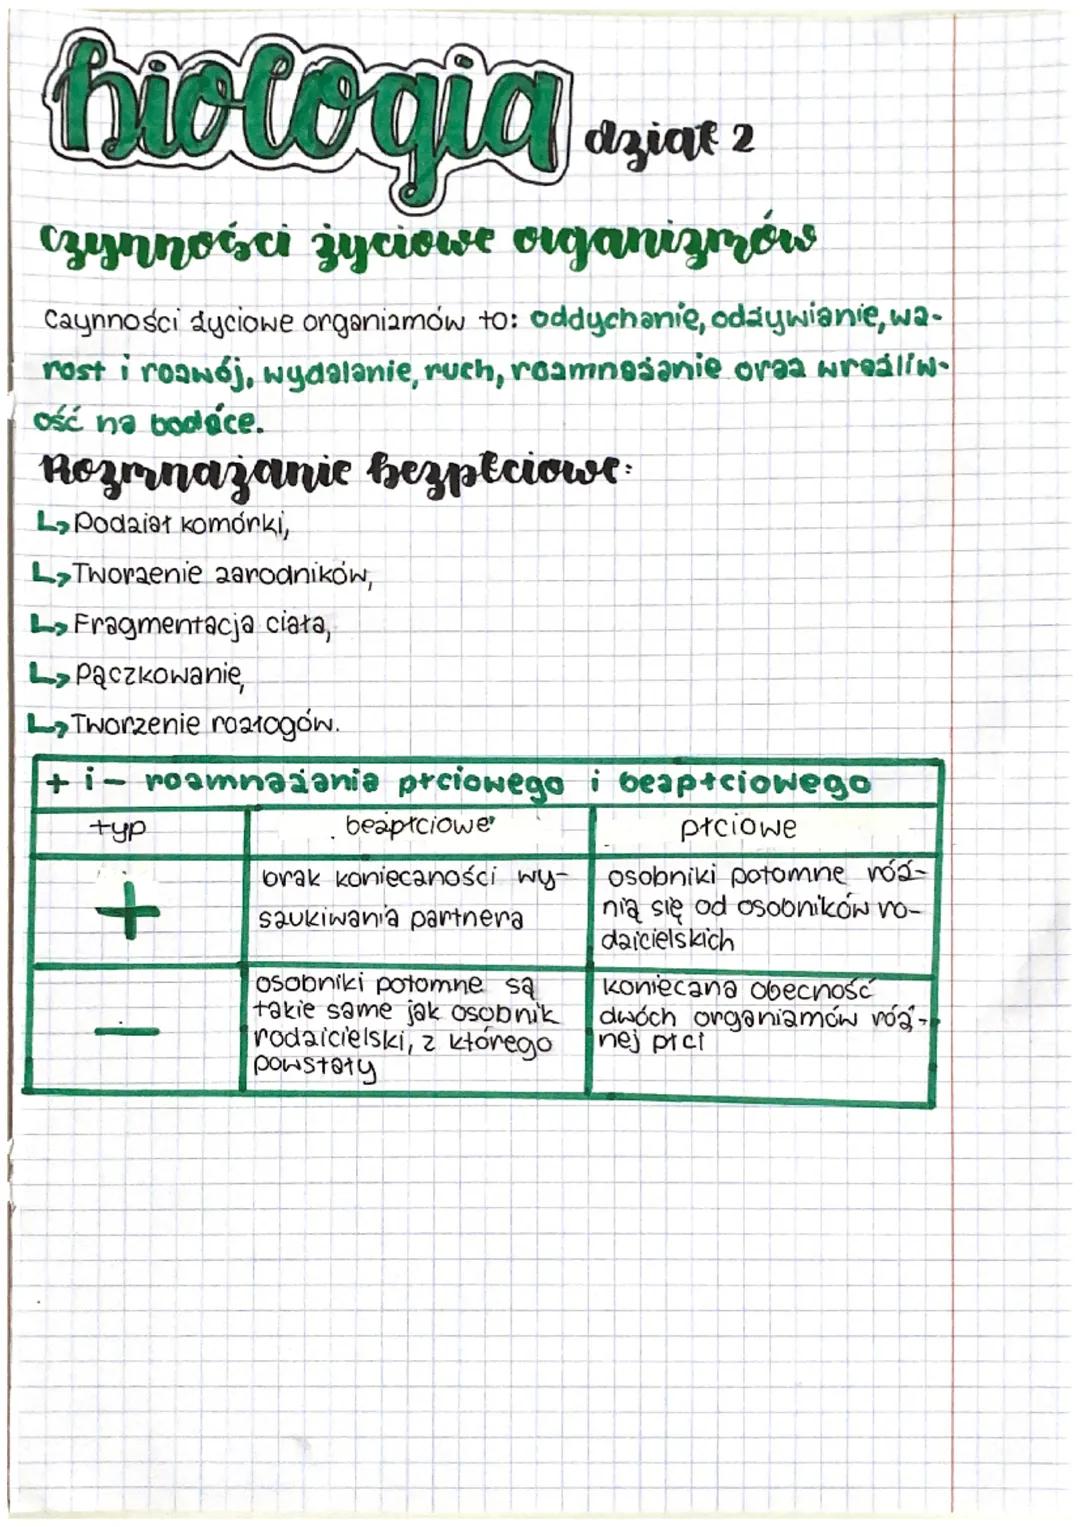 biologia dział 2
czynności życiowe organizmów
Czynności życiowe organizmów to: oddychanie, odżywianie, wz-
rost i rozwój, wydalanie, ruch, rozmnażanie oraz wrażliw-
ość na bodźce.
Rozmnażanie bezpłciowe:
↳ Podział komórki,
↳ Tworzenie zarodników,
↳ Fragmentacja ciała,
↳ Pączkowanie,
↳ Tworzenie rozłogów.
+ i - rozmnażania płciowego i bezpłciowego
typ bezpłciowe płciowe
+
brak konieczności wy-
szukiwania partnera
osobniki potomne róż-
nią się od osobników ro-
dzicielskich
-
osobniki potomne są
takie same jak osobnik
rodzicielski, z którego
powstały
konieczna obecność
dwóch organizmów róż-
nej płci